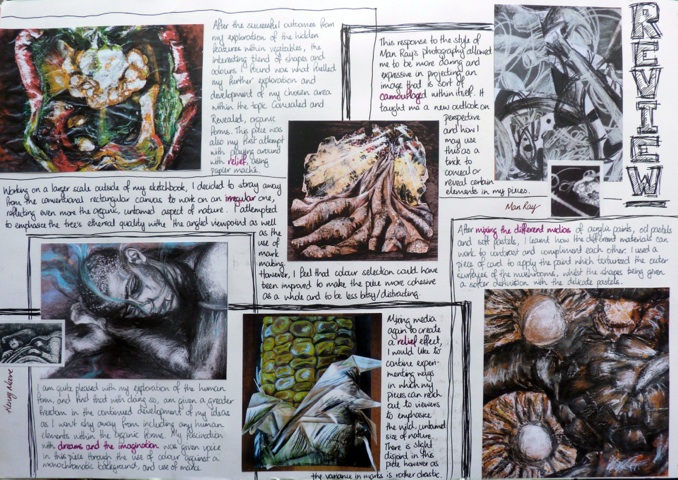 REVIEW
After the successful outcomes from
my exploration of the hidden
features within vegetables, the
interesting blend of shapes and
colours I found was what fuelled
my further exploration and
development of my chosen area
within the topic Concealed and
Revealed, organic
forms. This piece was
also my first attempt
with playing around
with relief, using
papier mache.
This response to the style of
Man Ray's photography allowed
me to be more daring and
expressive in projecting an
image that is sort of
camouflaged within itself. It
taught me a new outlook on
perspective
and how I
may use
this as a
trick to
conceal or
reveal certain
elements in my pieces.
Man Ray
Working on a larger scale outside of my sketchbook, I decided to stray away
from the conventional rectangular canvas to work on an irregular one,
reflecting even more the organic, untamed aspect of nature. I attempted
to emphasise the tree's ethereal quality with the angled viewpoint as well
as the
use of
mark
making.
However, I feel that colour selection could have
been improved to make the piece more cohesive
as a whole and to be less busy/distracting.
After mixing the different medias of acrylic paints, oil pastels
and soft pastels, I learnt how the different materials can
work to contrast and compliment each other. I used a
piece of card to apply the paint which texturized the outer
surfaces of the mushrooms, whilst the shapes being given
a softer definition with the delicate pastels.
Henry Moore
I am quite pleased with my exploration of the human
form, and find that with doing so, am given a greater
freedom in the continued development of my ideas
as I went shy away from including any human
elements within the organic forms. My fascination
with dreams and the imagination was given voice
in this piece through the use of colour against a
monochromatic background, and use of marks.
Mixing media
again to create
a relief effect,
I would like to
continue experi-
menting ways
in which my
pieces can reach
out to viewers
to emphasise
the wild, untamed
side of nature.
There is slight
discord in this
piece however as
the variance in marks is rather drastic.